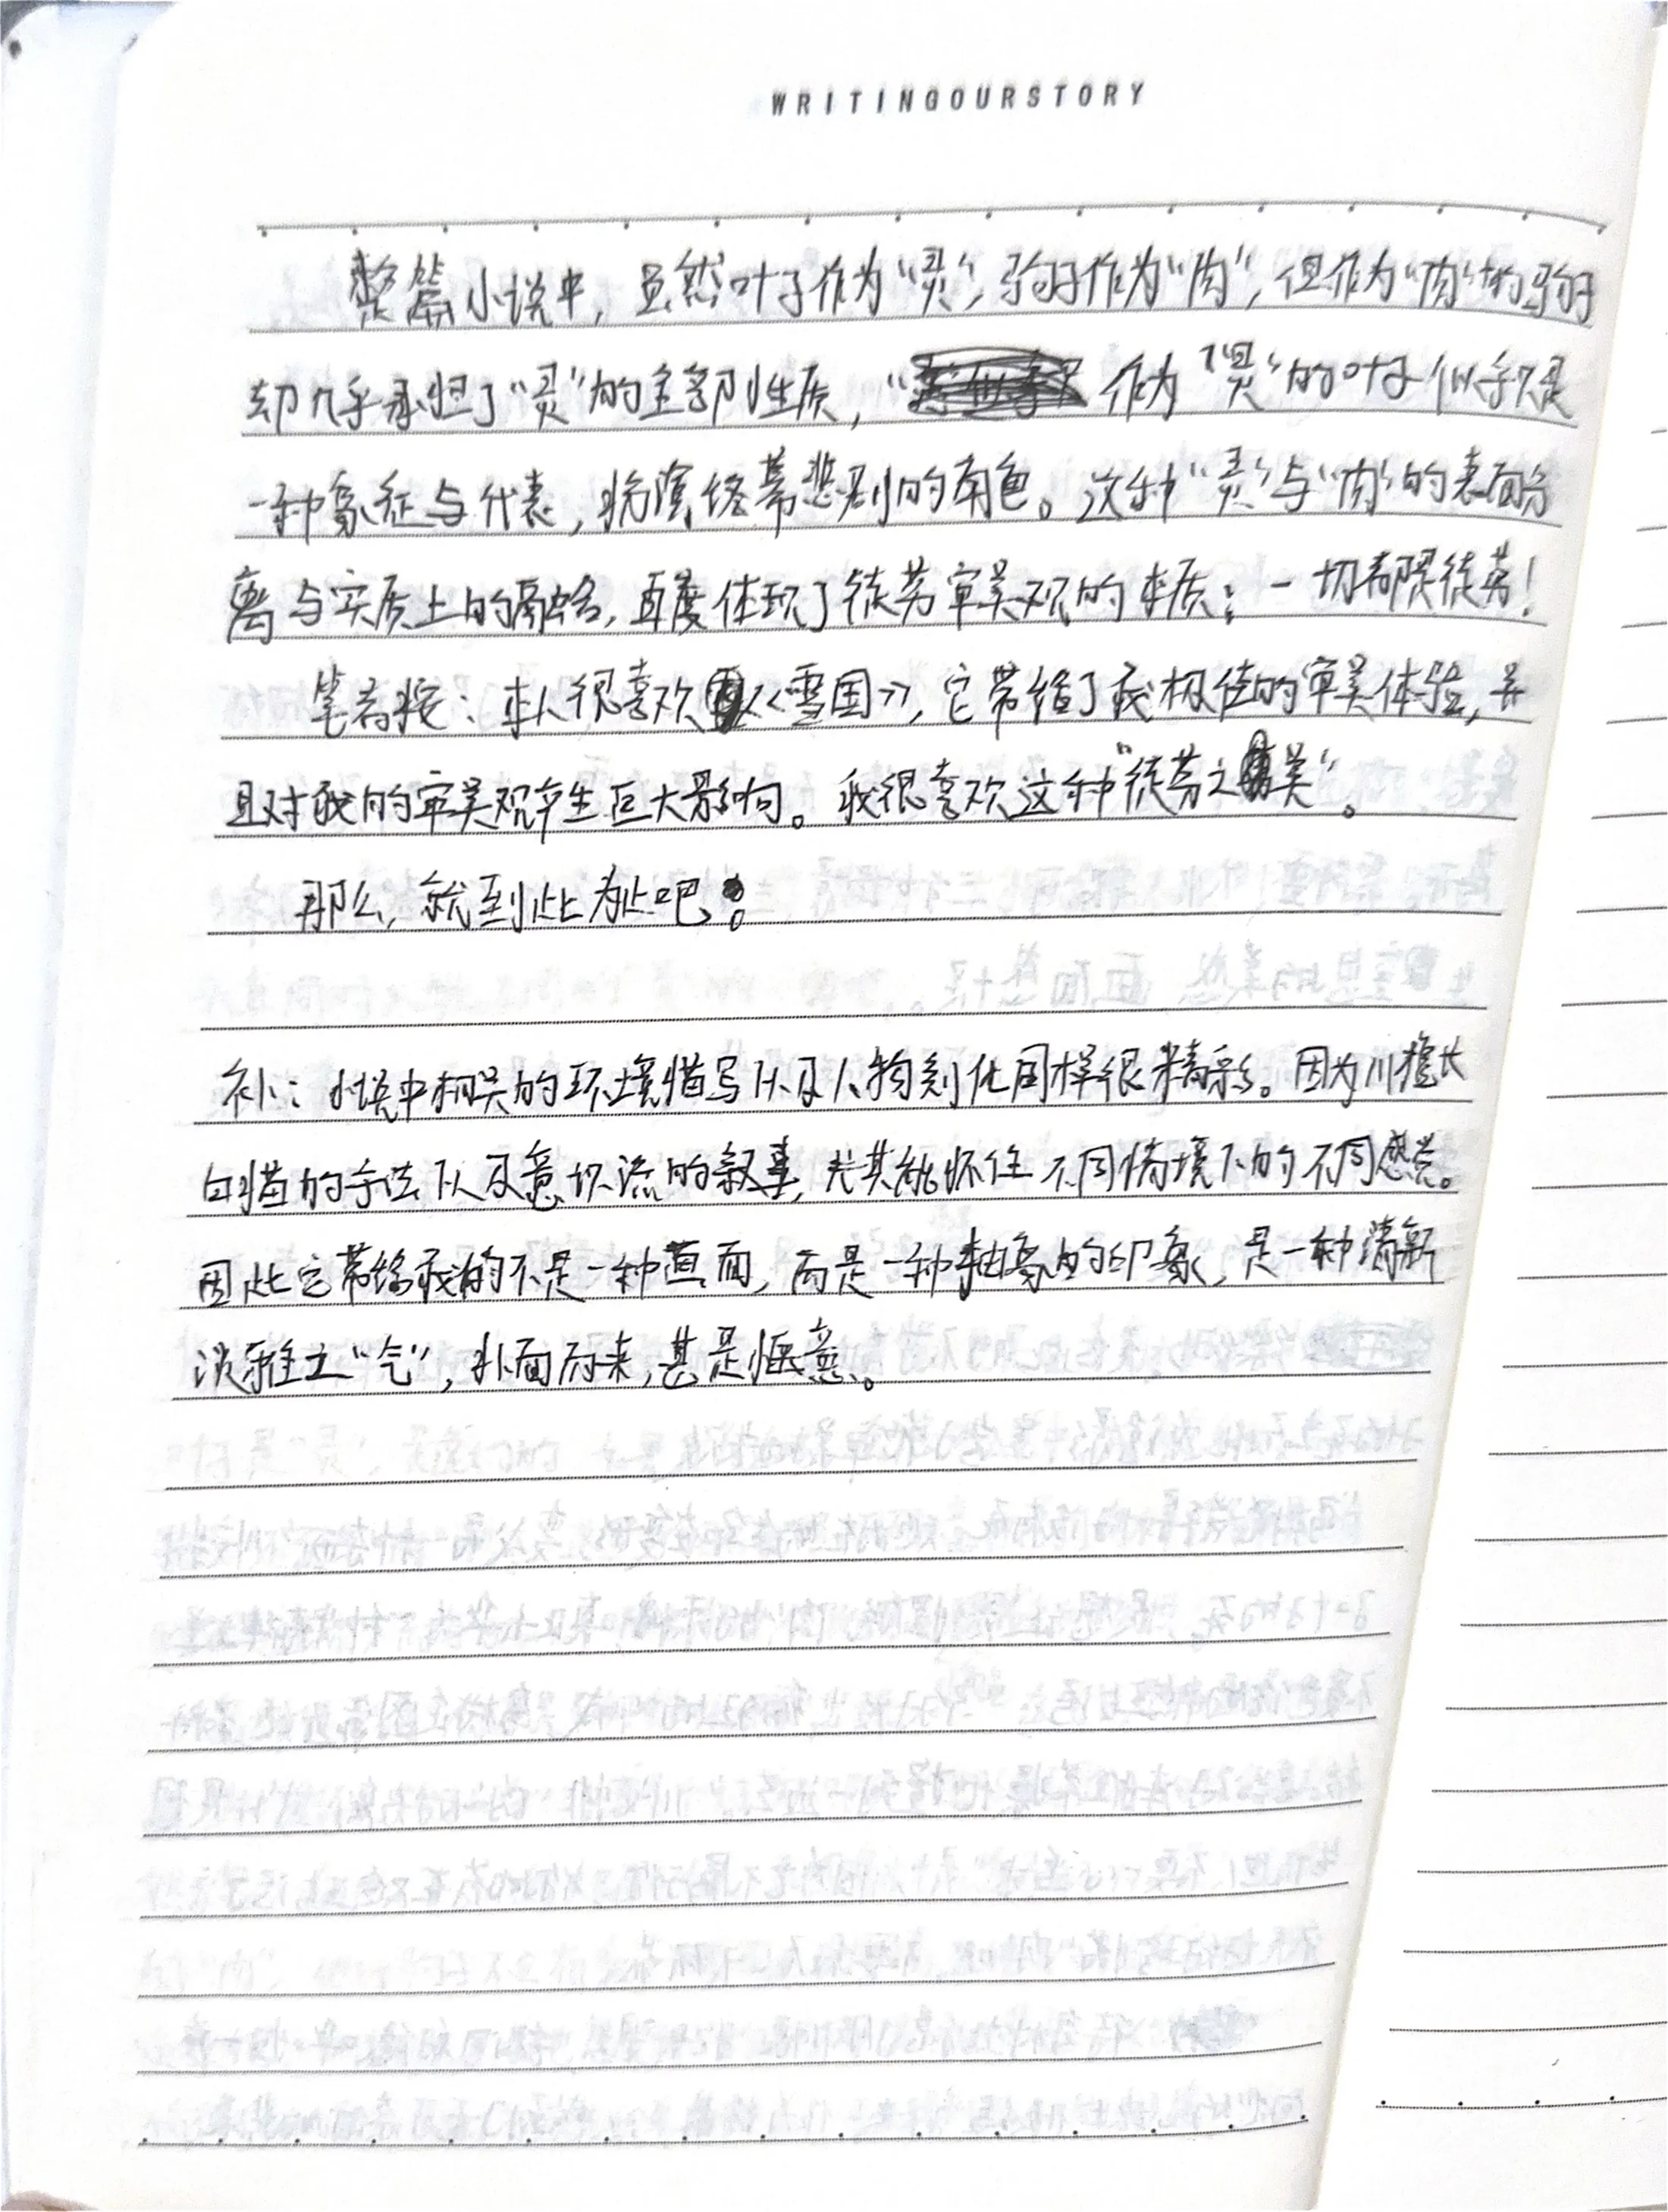 WRITINGOURSTORY
整篇小说中，虽然叶子作为“灵”，驹子作为“肉”，但作为“肉”的驹子
却几乎承担了“灵”的全部性质，“ 作为“灵”的叶子似乎只是
一种象征与代表，将演终幕悲剧的角色。这种“灵”与“肉”的表面分
离与实质上的融合，再度体现了徒劳审美观的本质：一切都是徒劳！
笔者按：本人很喜欢《雪国》，它带给了我极佳的审美体验，并
且对我的审美观产生巨大影响。我很喜欢这种“徒劳之美”。
那么，就到此为止吧。
补：小说中相关的环境描写以及人物刻化同样很精彩。因为川擅长
白描的手法以及意识流的叙事，尤其能抓住不同情境下的不同感觉。
因此它带给我的不是一种直面，而是一种抽象的印象，是一种清新
淡雅之“气”，扑面而来，甚是惬意。